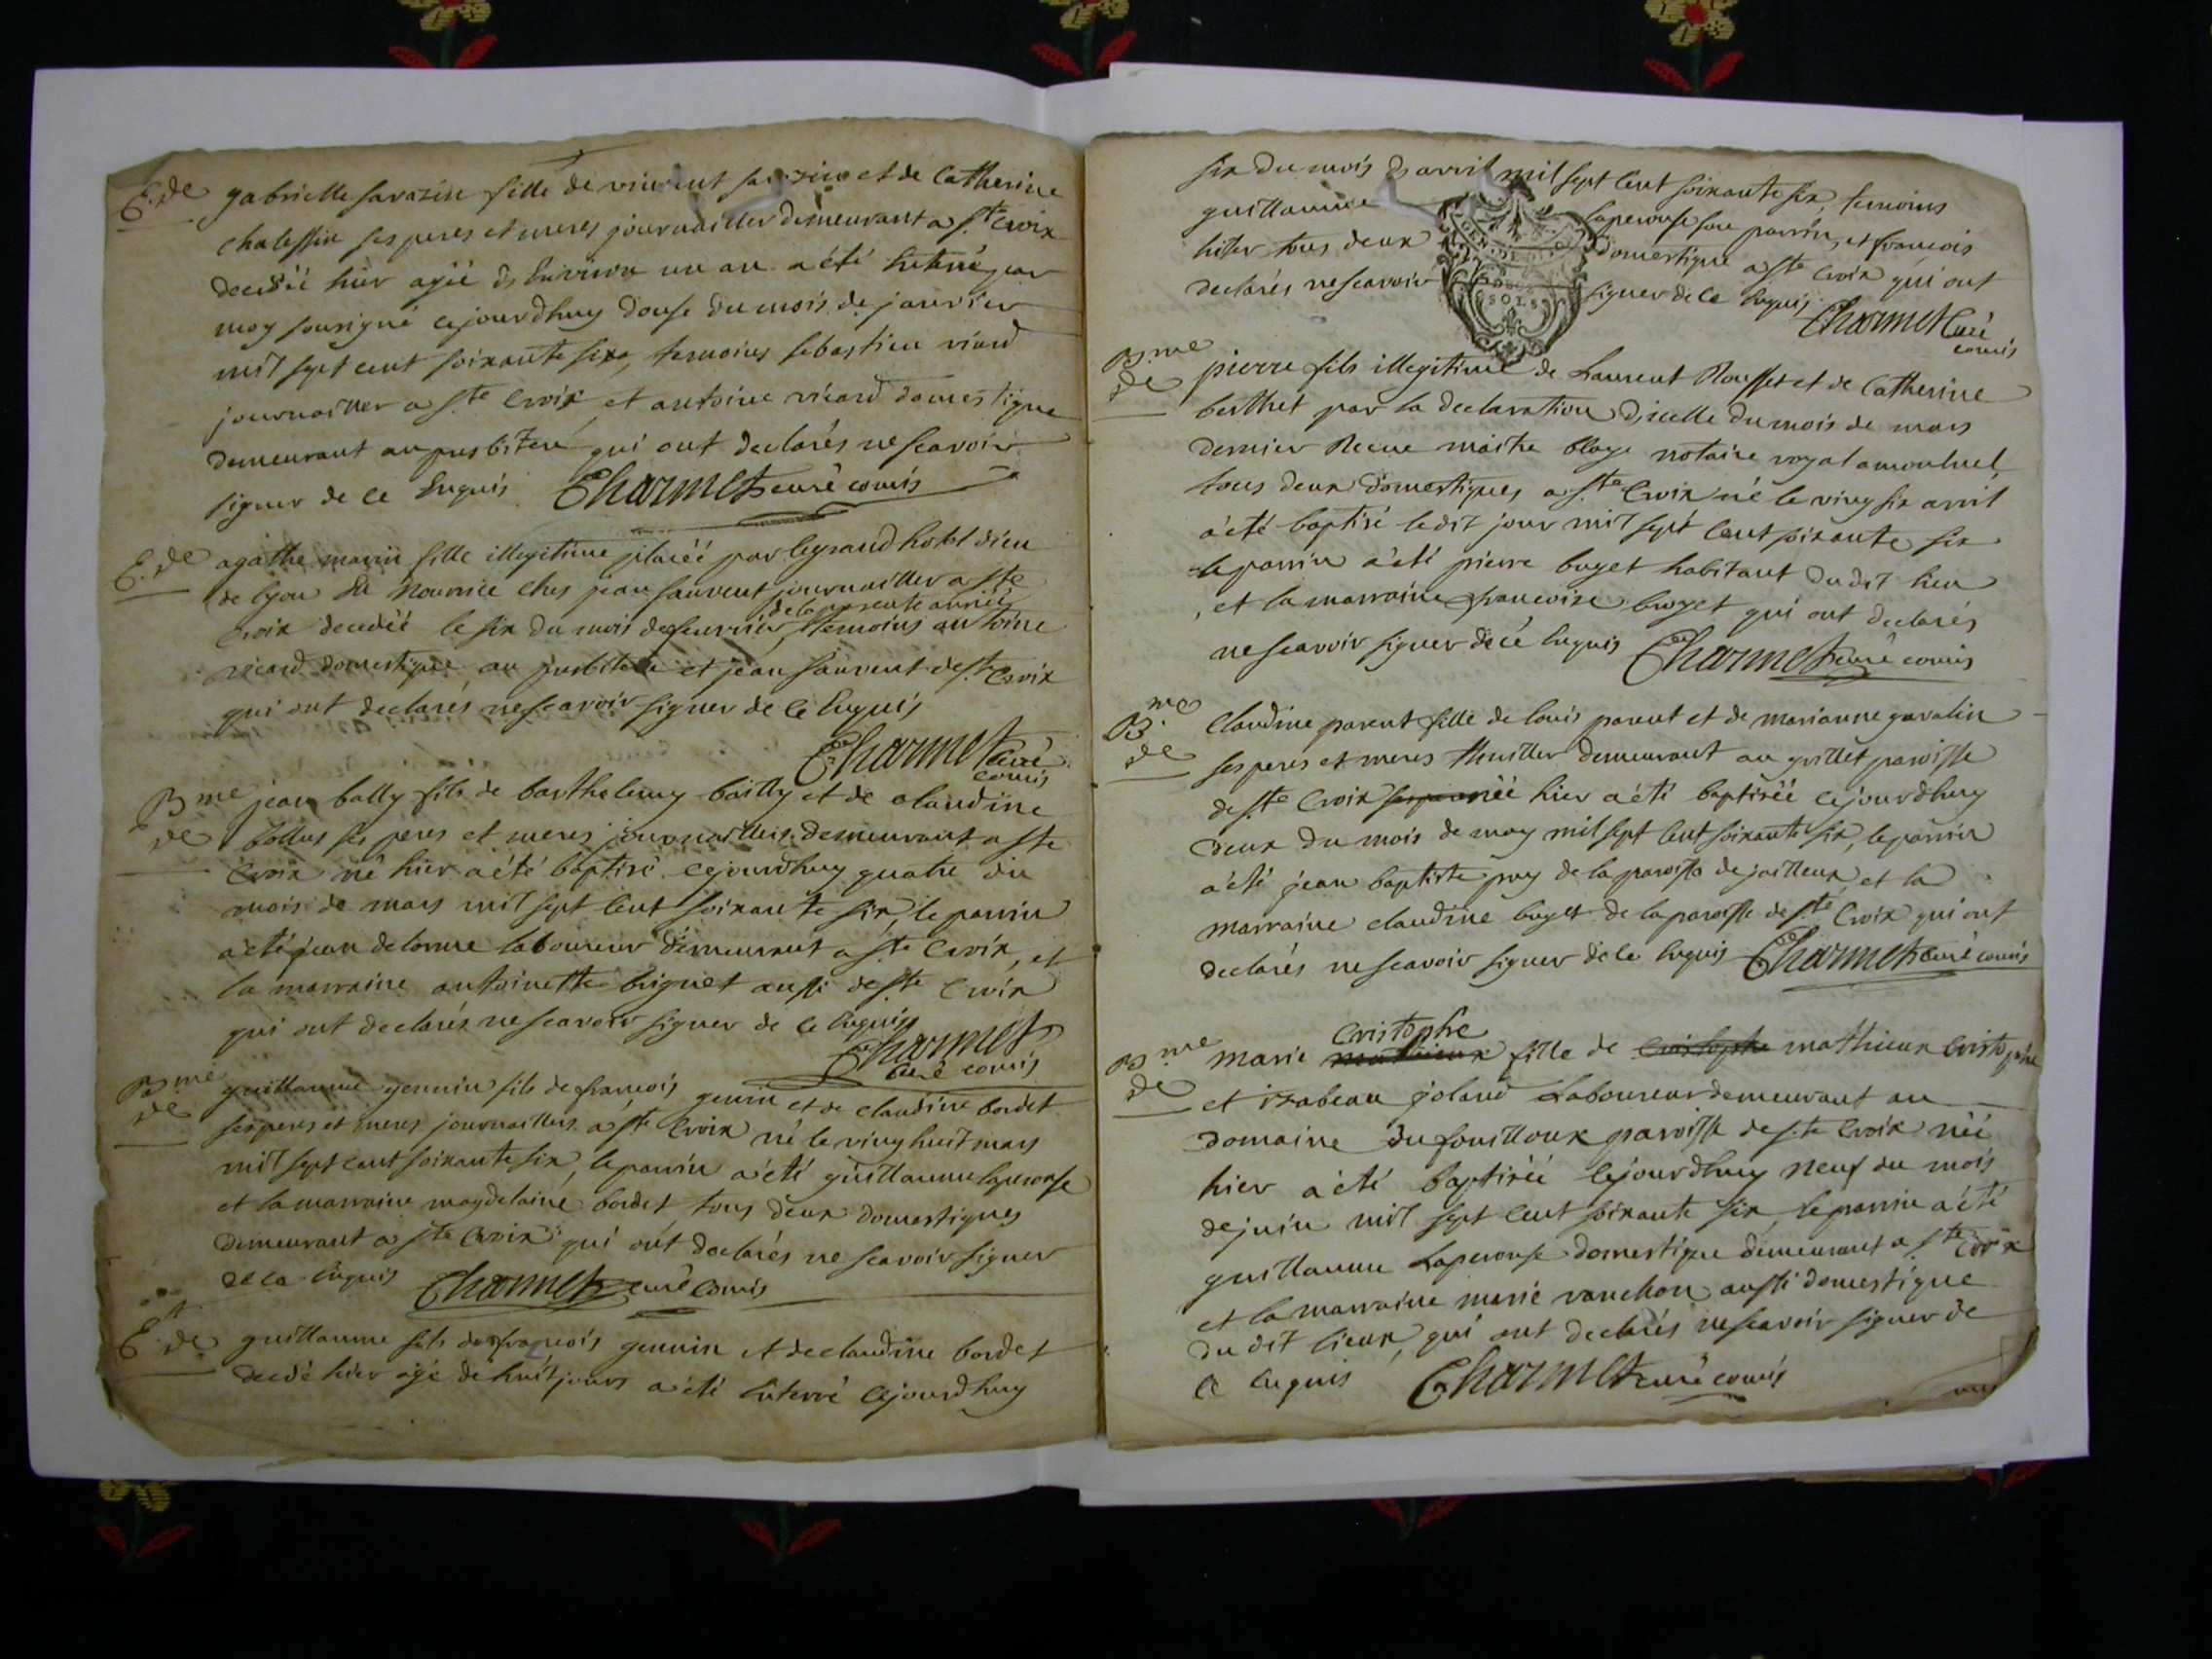 E. de gabrielle sarazin fille de vincent sarazin et de Catherine
chalessin ses peres et meres journaillier demeurant a ste Croix
decedéé hier agéé d'Environ un an a été Enterré par
moy sousigné cejourdhuy douse du mois de janvier
mil sept cent soixante sixe, temoins sebastien viard
journailler a ste Croix et antoine ricard domestique
demeurant au presbitere qui ont declarés ne scavoir
signer de ce Enquis Charmet curé comis
E. de agathe marie fille illegitime placéé par legrand hotel dieu
de lyon En Nourrice ches jean sauvent journailler a ste
de la presente année
Croix decedéé le six du mois de feuvrier, temoins antoine
ricard domestique au presbitere et jean sauvent de ste Croix
qui ont declarés ne scavoir signer de ce Enquis
Charmet Curé
comis
B.me jean bally fils de barthelemy bailly et de claudine
de bollus ses peres et meres journailliers demeurant a ste
Croix né hier a été baptisé cejourdhuy quatre du
mois de mars mil sept Cent soixante six, le parrin
a été jean delorme laboureur demeurant a ste Croix, et
la marraine antoinette briguet aussi de ste Croix
qui ont declarés ne scavoir signer de ce Enquiss
Charmet
Curé comis
B.me guillaume gennin fils de francois genin et de claudine bordet
de ses peres et meres journailliers a ste Croix né le ving huit mars
mil sept cent soixante six, le parrin a été guillaume laperouse
et la marraine magdelaine bordet, tous deux domestiques
demeurant a ste Croix qui ont declarés ne scavoir signer
de ce Enquis Charmet curé comis
E.t de guillaume fils de francois gennin et de claudine bordet
decedé hier agé de huit jours a été Enterré cejourdhuy
six du mois d'avril mil sept Cent soixante six, temoins
guillaume laperouse son parrin, et francois
hiller tous deux domestique a ste Croix qui ont
declarés ne scavoir signer de ce Enquis
GEN. DE
SOLS
Charmet Curé
comis
B.me pierre fils illegitime de Laurent Rousset et de Catherine
de berthet par la declaration d'icelle du mois de mars
dernier Recue maitre blage notaire royal a montluel
tous deux domestiques a ste Croix né le ving six avril
a été baptisé le dit jour mil sept Cent soixante six
le parrin a été pierre buget habitant du dit lieu
et la marraine francoise buget qui ont declarés
ne scavoir signer de ce Enquis Charmet curé comis
B.me Claudine parent fille de louis parent et de marianne gavalin
de ses peres et meres thuillier demeurant au grillet paroisse
de ste Croix néé hier a été baptiséé cejourdhuy
deux du mois de may mil sept Cent soixante six, le parrin
a été jean baptiste puy de la paroisse de jailleux et la
marraine claudine buget de la paroisse de ste Croix qui ont
declarés ne scavoir signer de ce Enquis Charmet curé comis
Cristophe
B.me marie mathieux fille de Cristophe mathieux Cristophe
de et izabeau joland Laboureur demeurant au
domaine du fouilloux paroisse de ste Croix néé
hier a été baptiséé cejourdhuy neuf du mois
de juin mil sept Cent soixante six le parrin a été
guillaume Laperouse domestique demeurant a ste Croix
et la marraine marie vanchon aussi domestique
du dit lieux, qui ont declarés ne scavoir signer de
ce Enquis Charmet curé comis